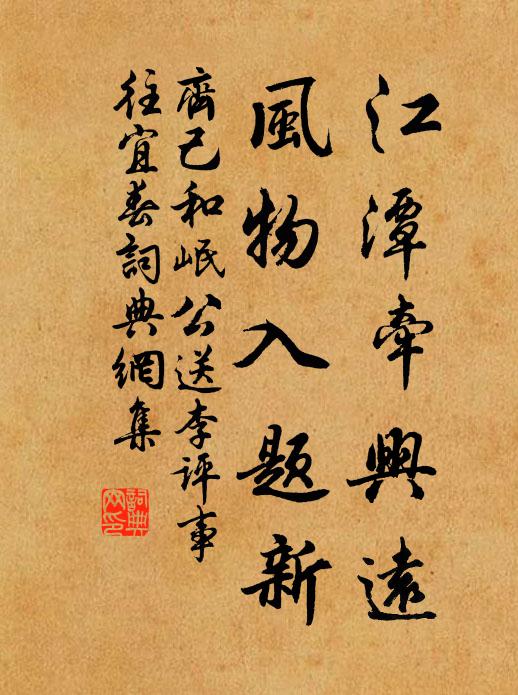 江潭牽興遠
風物入题新
齊己和岷公送李評事
往宜春詞典網集
詞典
网印